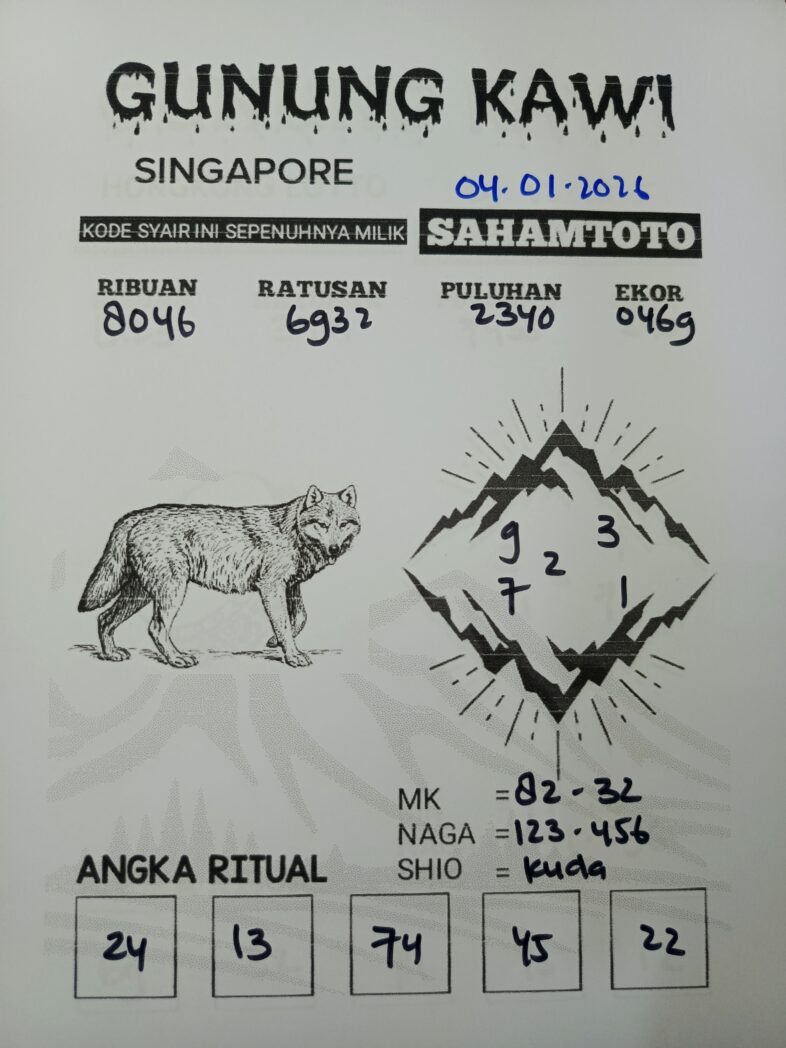 GUNUNG KAWI
SINGAPORE
04.01.2026
KODE SYAIR INI SEPENUHNYA MILIK SAHAMTOTO
RIBUAN RATUSAN PULUHAN EKOR
8046 6932 2340 0469
9 3
2
7 1
MK = 82 - 32
NAGA = 123 - 456
SHIO = kuda
ANGKA RITUAL
24 13 74 45 22